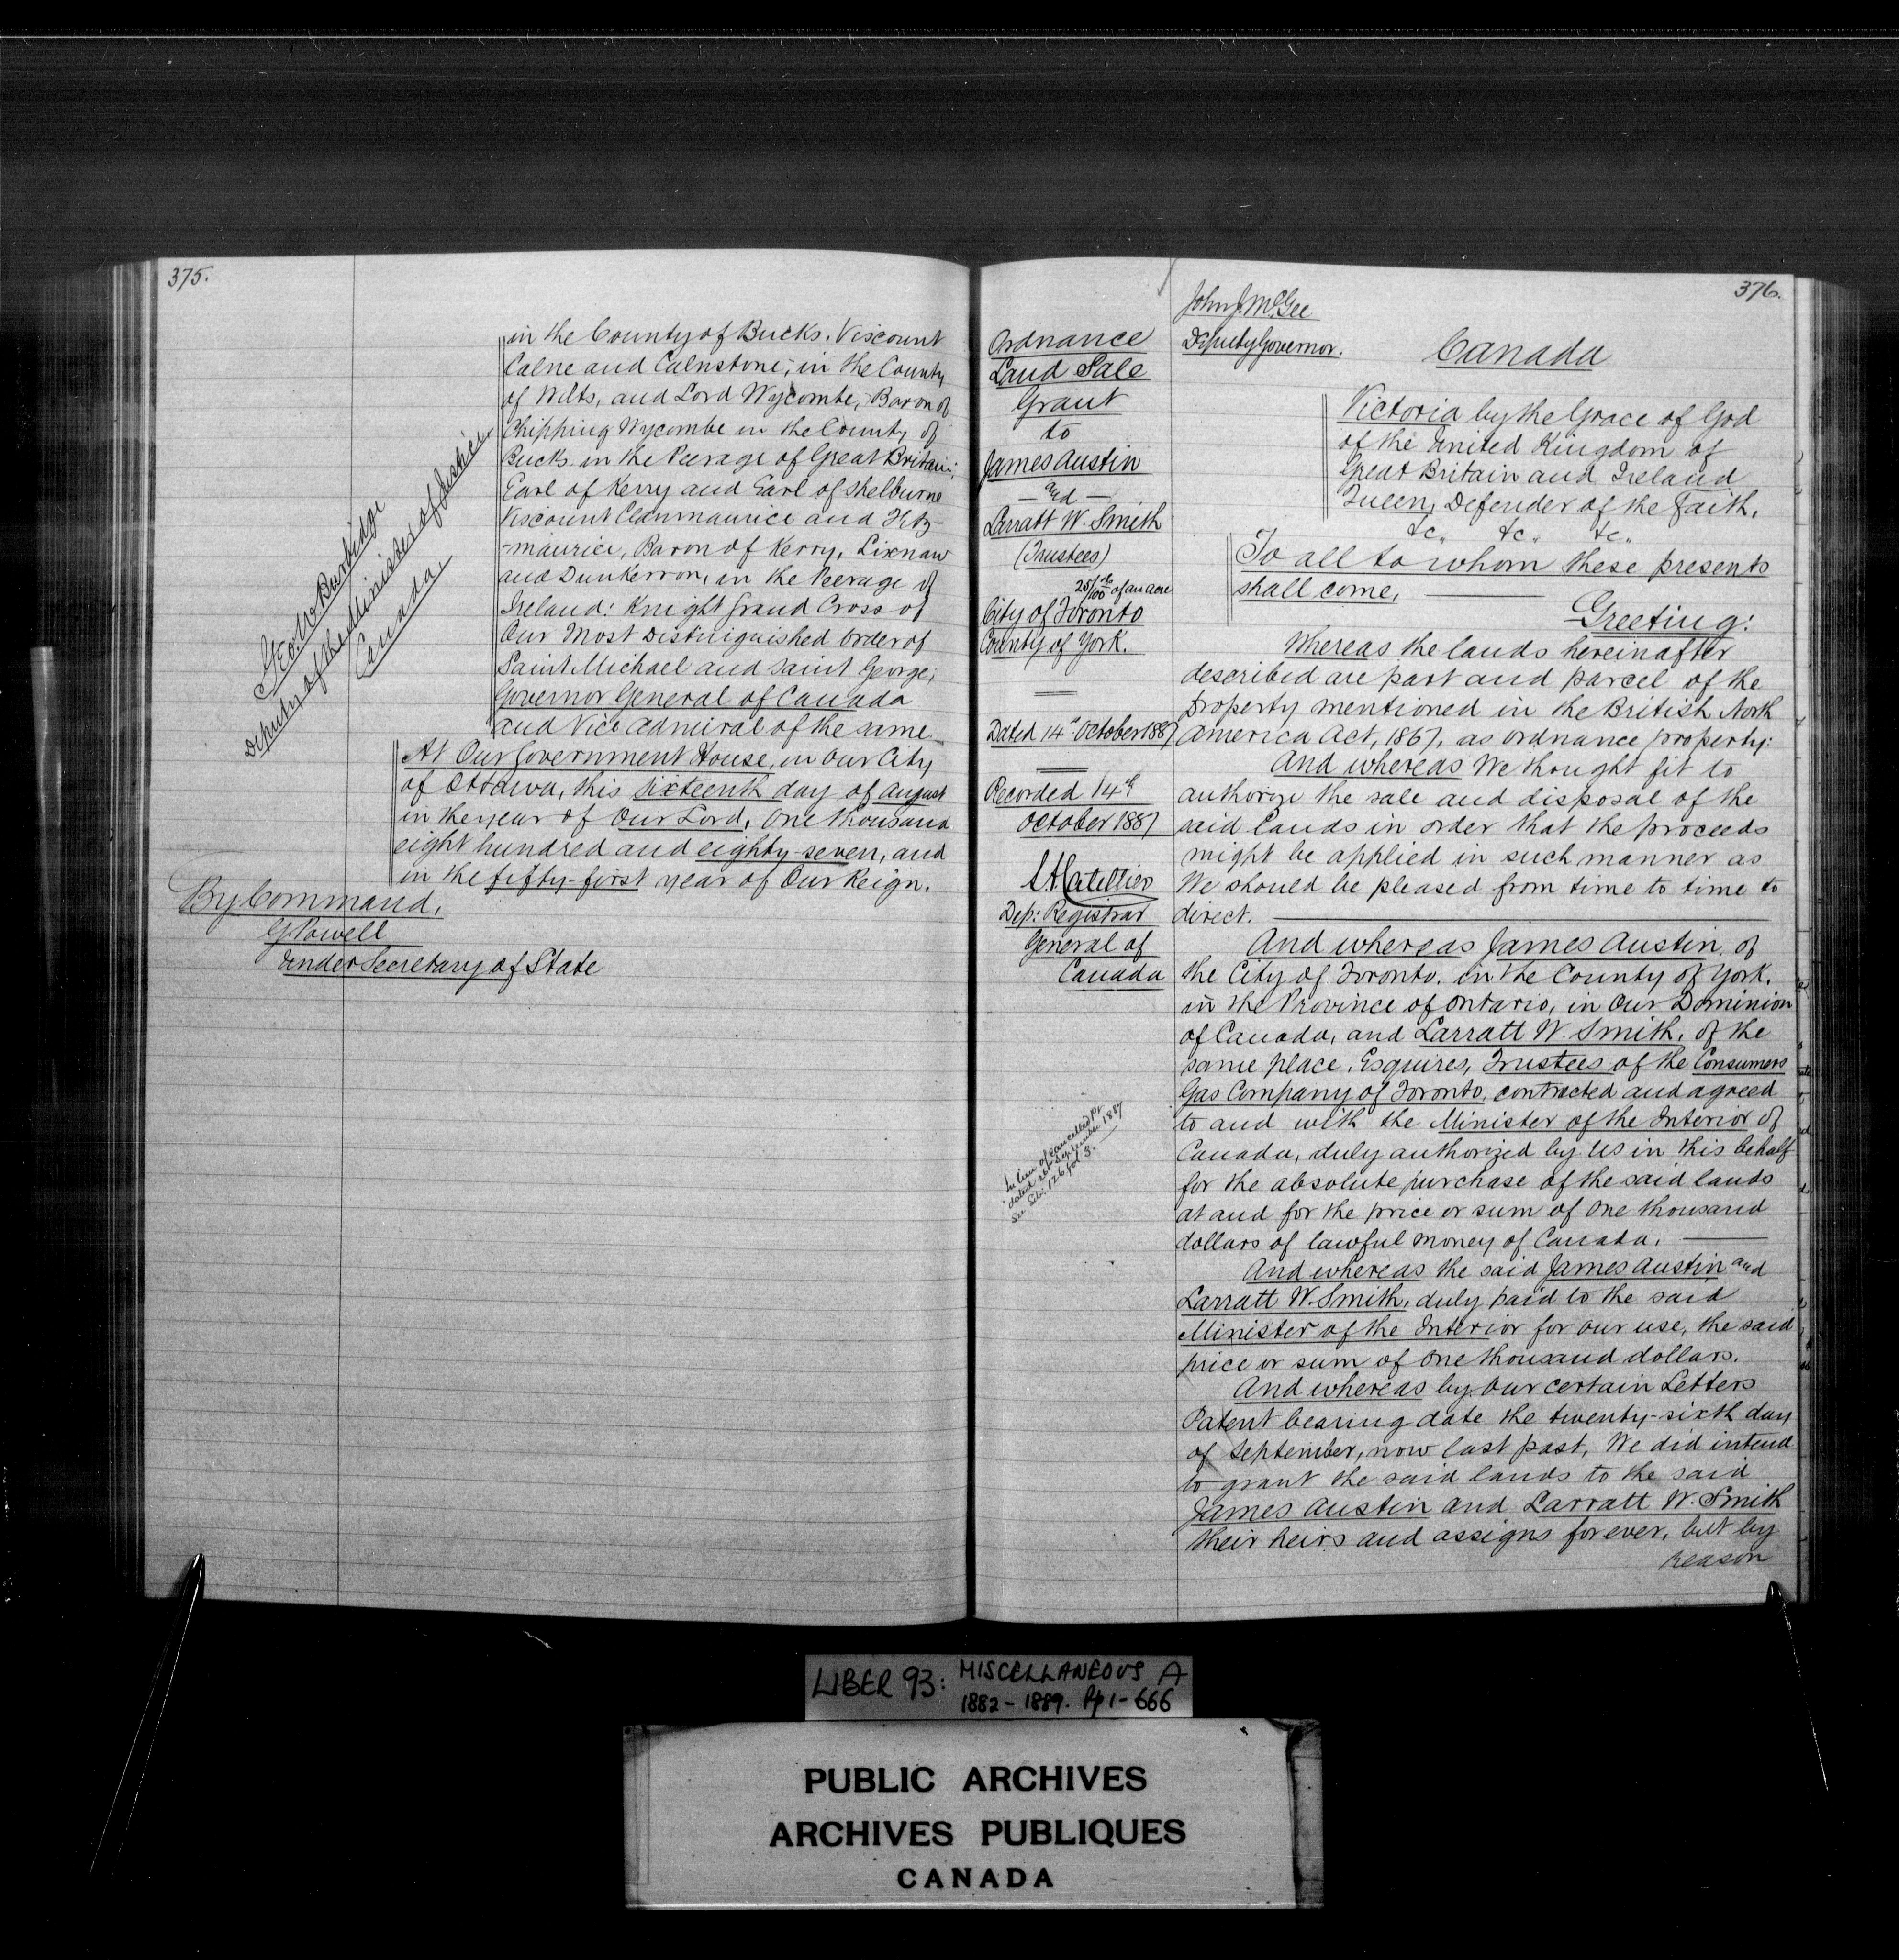 375.
in the County of Bucks. Viscount
Calne and Calnstone, in the County
of Wilts, and Lord Wycombe, Baron of
Chipping Wycombe in the County of
Bucks in the Peerage of Great Britain;
Earl of Kerry and Earl of Shelburne
Viscount Clanmaurice and Fitz-
-maurice, Baron of Kerry, Lixnaw
and Dunkerron, in the Peerage of
Ireland: Knight Grand Cross of
Our Most Distinguished Order of
Saint Michael and Saint George;
Governor General of Canada
and Vice Admiral of the same
At Our Government House, in Our City
of Ottawa, this sixteenth day of August
in the year of Our Lord, One thousand
eight hundred and eighty-seven, and
in the fifty-first year of Our Reign.
Geo. W Burbidge
Deputy of the Minister of Justice,
Canada.
By Command,
G Powell
Under Secretary of State
376.
Ordnance
Land Sale
Grant
to
James Austin
— and —
Larratt W. Smith
(Trustees)
25/100th of an acre
City of Toronto
County of York.
Dated 14th October 1887
Recorded 14th
October 1887
Dep: Registrar
General of
Canada
In lieu of cancelled Pt
dated 26th September 1887
See Lib: 126 fol 3.
John J. McGee
Deputy Governor.
Canada
Victoria by the Grace of God
of the United Kingdom of
Great Britain and Ireland
Queen, Defender of the Faith,
&c. &c. &c.
To all to whom these presents
shall come,
Greeting:
Whereas the lands hereinafter
described are part and parcel of the
property mentioned in the British North
America Act, 1867, as ordnance property:
And whereas We thought fit to
authorize the sale and disposal of the
said lands in order that the proceeds
might be applied in such manner as
We should be pleased from time to time to
direct.
And whereas James Austin, of
the City of Toronto, in the County of York,
in the Province of Ontario, in Our Dominion
of Canada, and Larratt W. Smith, of the
same place, Esquires, Trustees of the Consumers
Gas Company of Toronto, contracted and agreed
to and with the Minister of the Interior of
Canada, duly authorized by US in this behalf
for the absolute purchase of the said lands
at and for the price or sum of One thousand
dollars of lawful money of Canada.
And whereas the said James Austin and
Larratt W. Smith, duly paid to the said
Minister of the Interior for Our use, the said
price or sum of One thousand dollars.
And whereas by Our certain Letters
Patent bearing date the twenty-sixth day
of September, now last past, We did intend
to grant the said lands to the said
James Austin and Larratt W. Smith
their heirs and assigns for ever, but by
reason
LIBER 93: MISCELLANEOUS A
1882-1889. Pp 1-666
PUBLIC ARCHIVES
ARCHIVES PUBLIQUES
CANADA